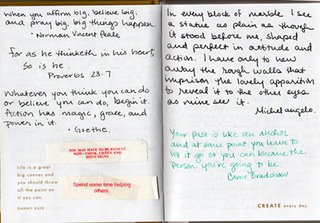 When you affirm big, believe big,
and pray big, big things happen.
- Norman Vincent Peale
for as he thinketh in his heart,
so is he.
Proverbs 23:7
Whatever you think you can do
or believe you can do, begin it.
Action has magic, grace, and
power in it.
- Goethe.
YOU MAY HAVE TO BE PATIENT
NOW-THINK, LISTEN AND
HEED SIGNS.
Spend some time helping
others.
Life is a great
big canvas and
you should throw
all the paint on
it you can.
DANNY KAYE
In every block of marble I see
a statue as plain as though
it stood before me, shaped
and perfect in attitude and
action. I have only to hew
away the rough walls that
imprison the lovely apparition
to reveal it to the other eyes
as mine see it.
Michelangelo.
Your past is like an anchor
and at some point you have to
let it go so you can become the
person you're going to be.
Carrie Bradshaw
CREATE every day.